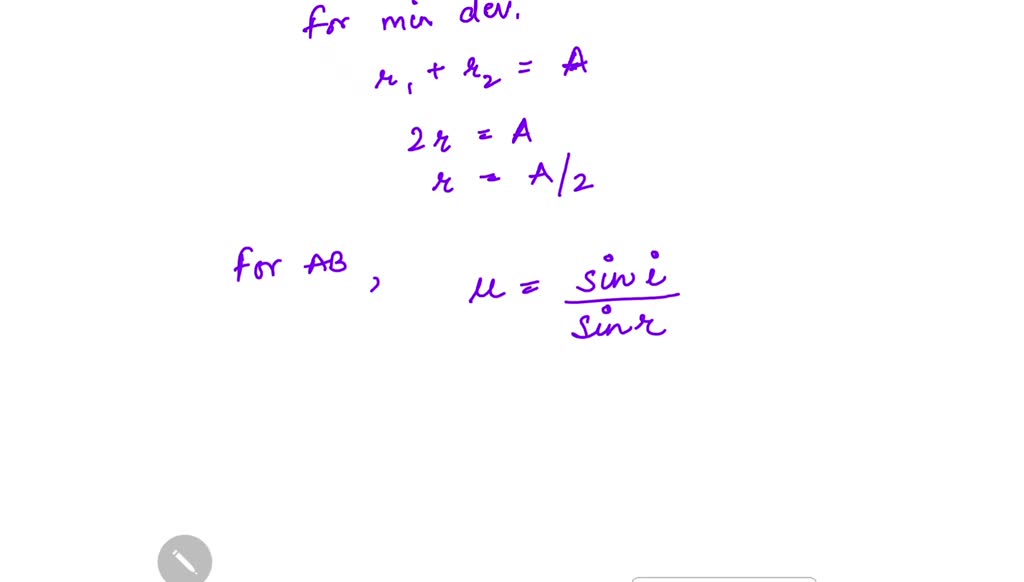 for min dev.
r₁ + r₂ = A
2r = A
r = A/2
for AB, μ = sin i / sin r